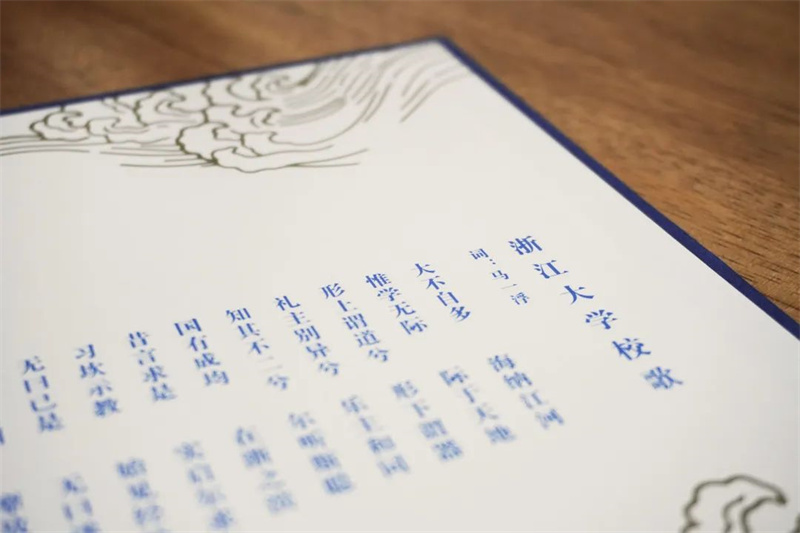 浙江大学校歌
词：马一浮
大不自多 海纳江河
惟学无际 际于天地
形上谓道兮 形下谓器
礼主别异兮 乐主和同
知其不二兮 尔听斯聪
国有成均 在浙之滨
昔言求是 实启尔求
习坎示教 始见经
无曰已是 无曰